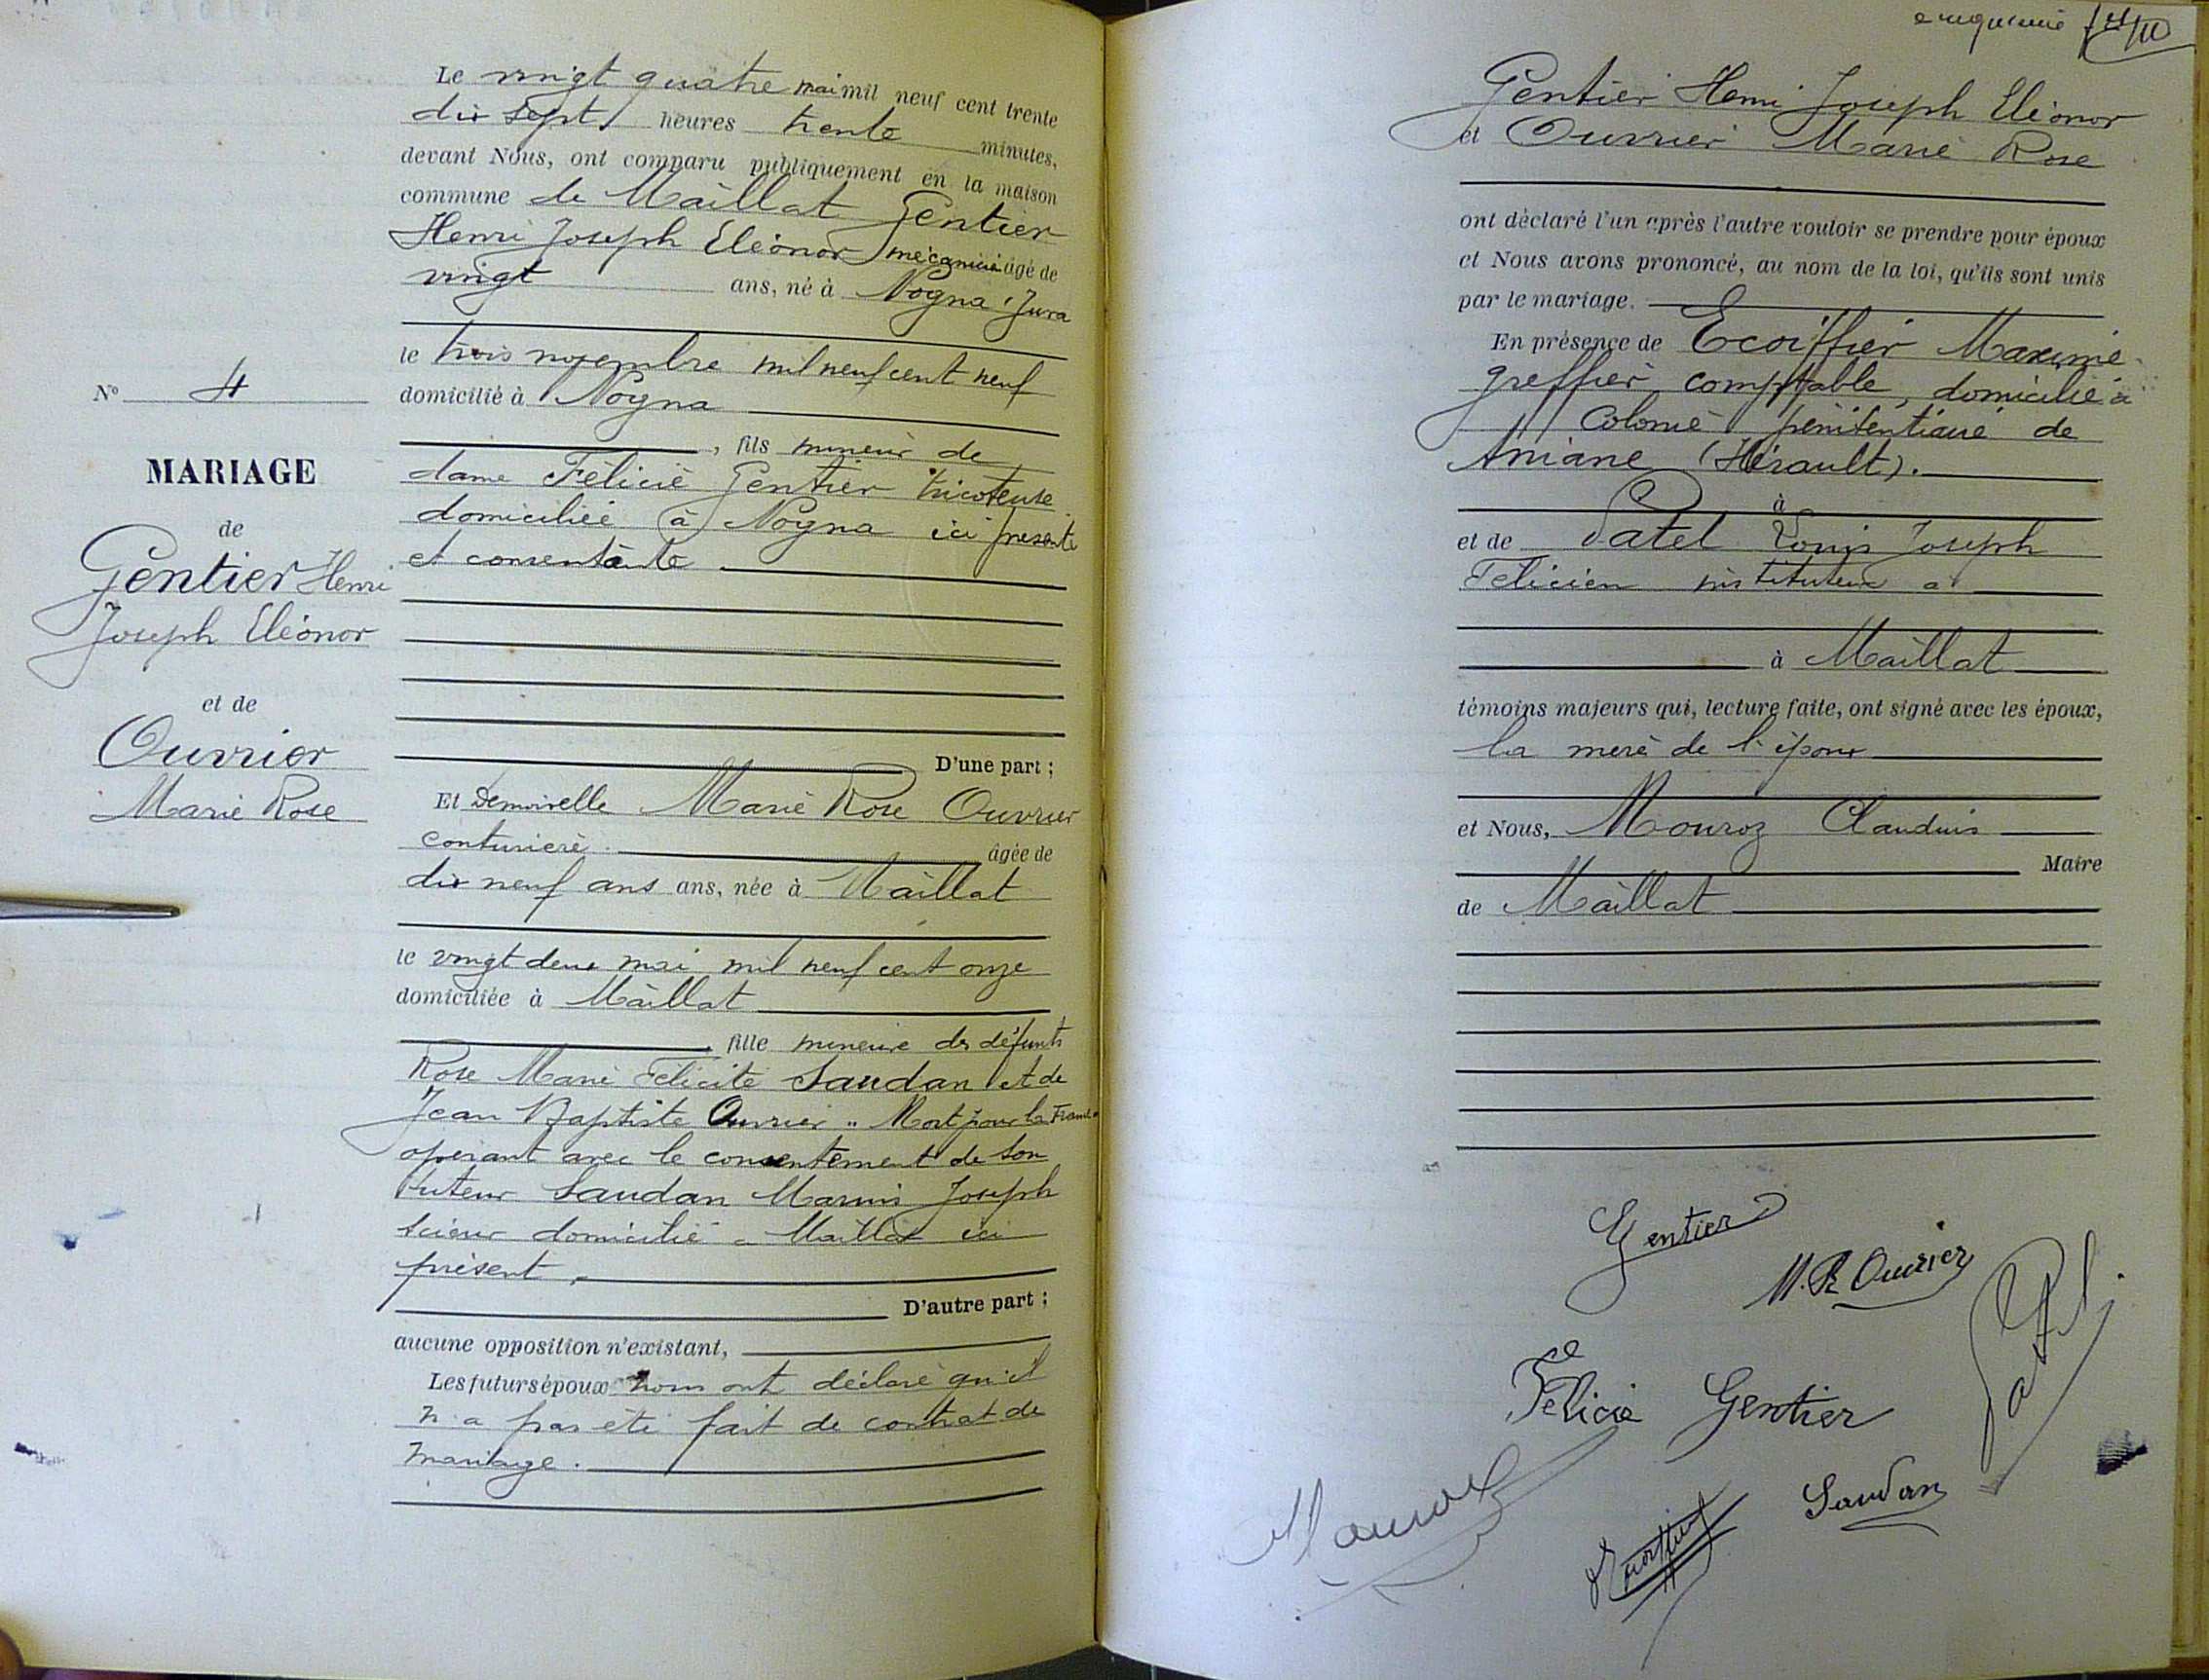 Le vingt quatre mai mil neuf cent trente
dix sept heures trente minutes,
devant Nous, ont comparu publiquement en la maison
commune de Maillat Gentier
Henri Joseph Eléonor mécanicien âgé de
vingt ans, né à Nogna (Jura
le trois novembre mil neuf cent neuf
domicilié à Nogna
, fils mineur de
dame Félicie Gentier tricoteuse
domiciliée à Nogna ici présente
et consentante
D'une part ;
Et Demoiselle Marie Rose Ouvrier
couturière âgée de
dix neuf ans ans, née à Maillat
le vingt deux mai mil neuf cent onze
domiciliée à Maillat
, fille mineure des défunts
Rose Marie Félicité Saudan et de
Jean Baptiste Ouvrier " Mort pour la France"
opérant avec le consentement de son
tuteur Saudan Marius Joseph
scieur domicilié à Maillat ici
présent
D'autre part ;
aucune opposition n'existant,
Les futurs époux nous ont déclaré qu'il
n'a pas été fait de contrat de
mariage.
No 4
MARIAGE
de
Gentier Henri
Joseph Eléonor
et de
Ouvrier
Marie Rose
Gentier Henri Joseph Eléonor
et Ouvrier Marie Rose
ont déclaré l'un après l'autre vouloir se prendre pour époux
et Nous avons prononcé, au nom de la loi, qu'ils sont unis
par le mariage.
En présence de Ecoiffier Maxime
greffier comptable, domicilié à
Colonie pénitentiaire de
Aniane (Hérault).
à
et de Patel Louis Joseph
Félicien instituteur à
à Maillat
témoins majeurs qui, lecture faite, ont signé avec les époux,
la mère de l'époux
et Nous, Mouroz Claudius
Maire
de Maillat
Gentier
M. R Ouvrier
Patel
Félicie Gentier
Mouroz
Saudan
Ecoiffier